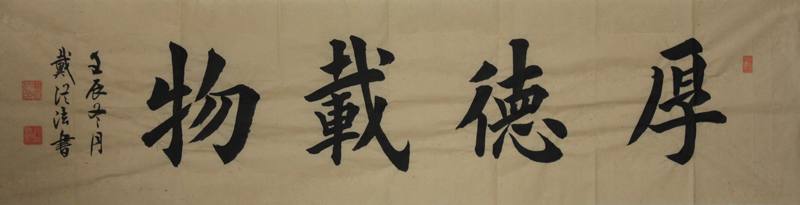 厚德載物
壬辰冬月
戴浥清書